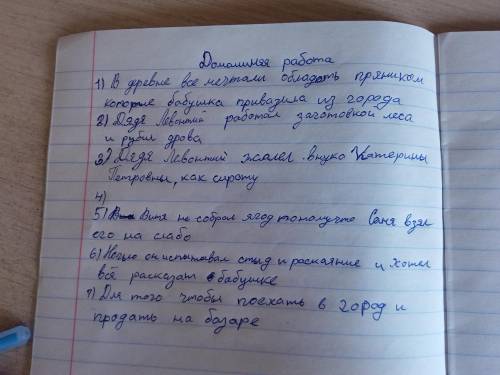 Домашняя работа
1) В деревне все мечтали обладать пряником
которые бабушка привазила из города
2) Дядя Левонтий работал заготовкой леса
и рубил дрова
3) Дядя Левонтий жалел внука Катерины
Петровны, как сироту
4)
5) Витя не собрал ягод потому что Саня взял
его на слабо
6) Ночью он испытывал стыд и раскаяние и хотел
всё расказат бабушке
7) Для того чтобы поехать в город и
продать на базаре